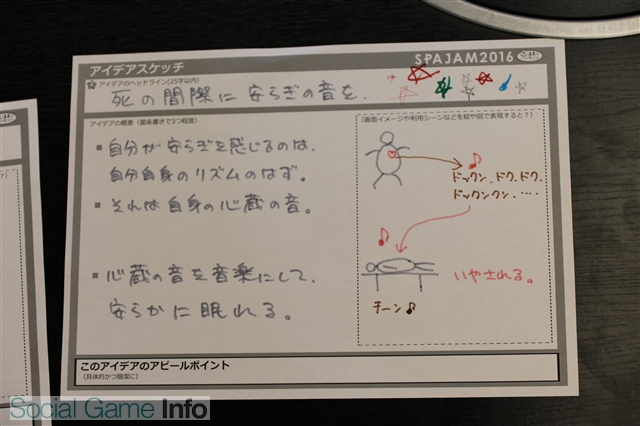 アイデアスケッチ
SPAJAM2016
アイデアのヘッドライン(25字以内)
死の間際に安らぎの音を.
アイデアの概要（箇条書きで3つ程度）
（画面イメージや利用シーンなどを絵や図で表現すると？）
■ 自分が安らぎを感じるのは、
自分自身のリズムのはず。
■ それは自身の心蔵の音。
■ 心蔵の音を音楽にして、
安らかに眠れる。
ドックン、ドク、ドク、
ドックンクン、‥‥
いやされる。
チーン♪
このアイデアのアピールポイント
（具体的かつ簡潔に）
Social Game Info